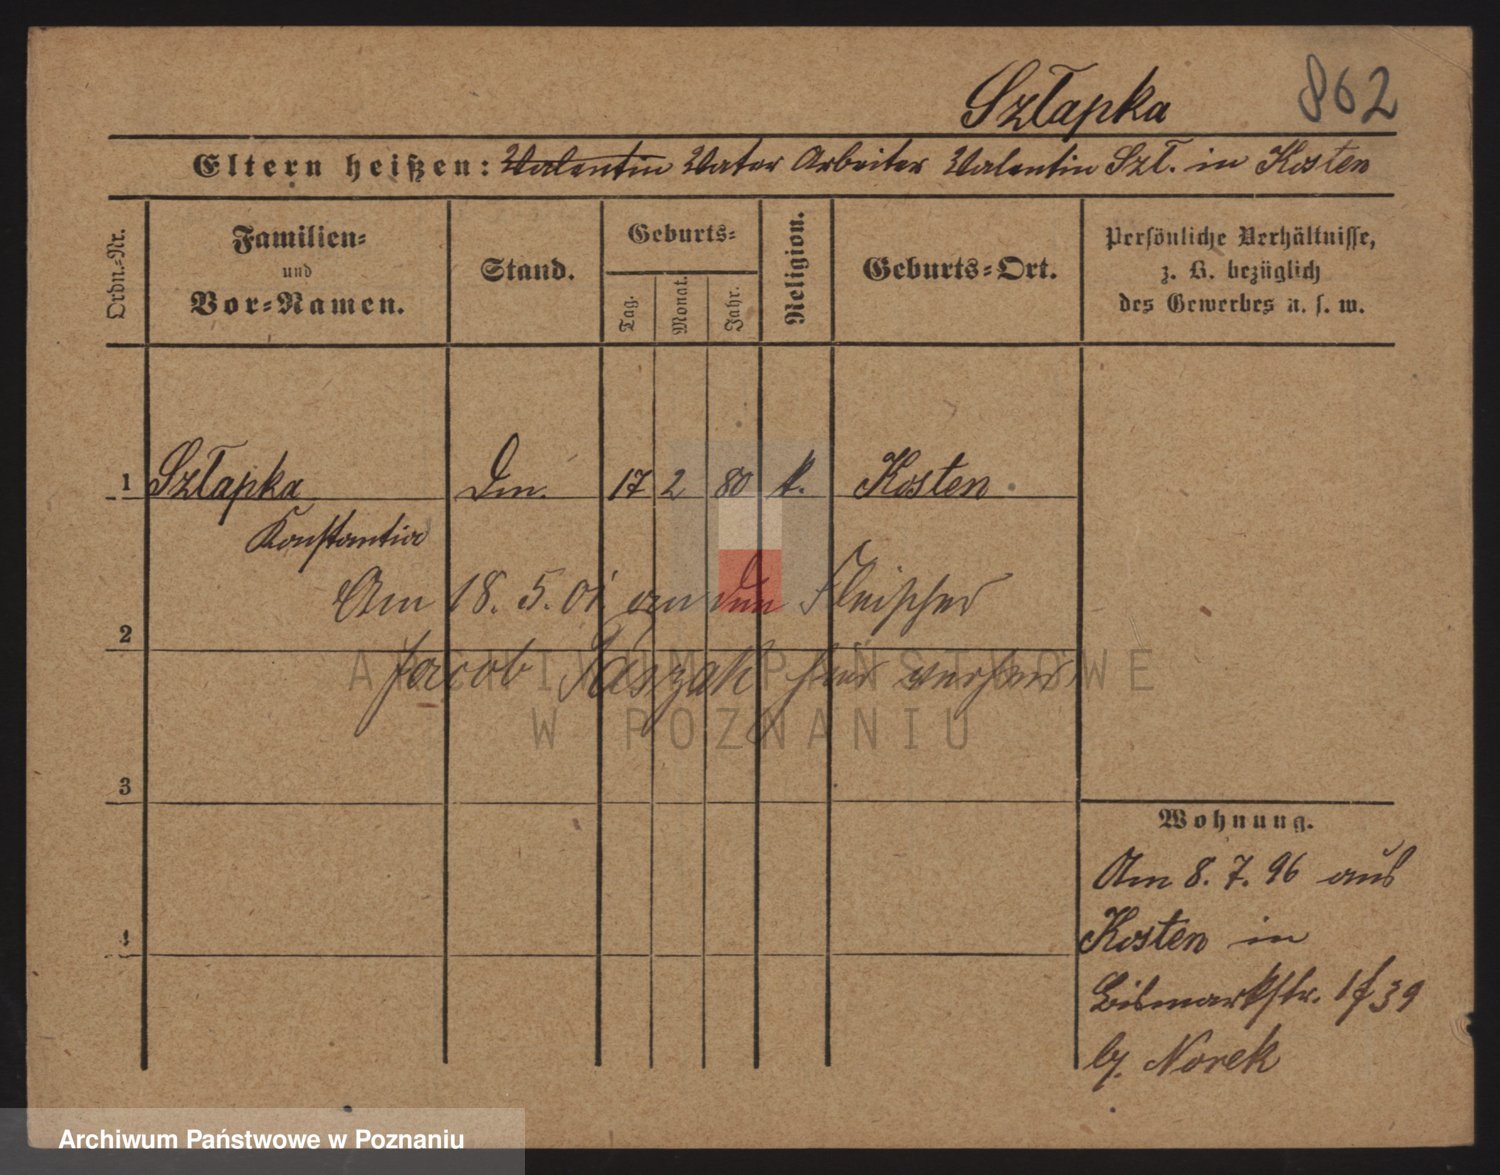 Szłapka 862
Eltern heißen: Valentin Vater Arbeiter Valentin Szł. in Kosten
Ordn.-Nr.
Familien- und Vor-Namen.
Stand.
Geburts-
Tag.
Monat.
Jahr.
Religion.
Geburts-Ort.
Persönliche Verhältnisse,
z. B. bezüglich
des Gewerbes u. s. w.
1 Szłapka Dm. 17 2 80 k. Kosten
Konstantia
Am 18. 5. 01 an den Fleischer
2
Jacob hier verh
3
4
Wohnung.
Am 8. 7. 96 aus
Kosten in
Bismarkstr. 39
by. Norek
ARCHIWUM PAŃSTWOWE
W POZNANIU
Archiwum Państwowe w Poznaniu